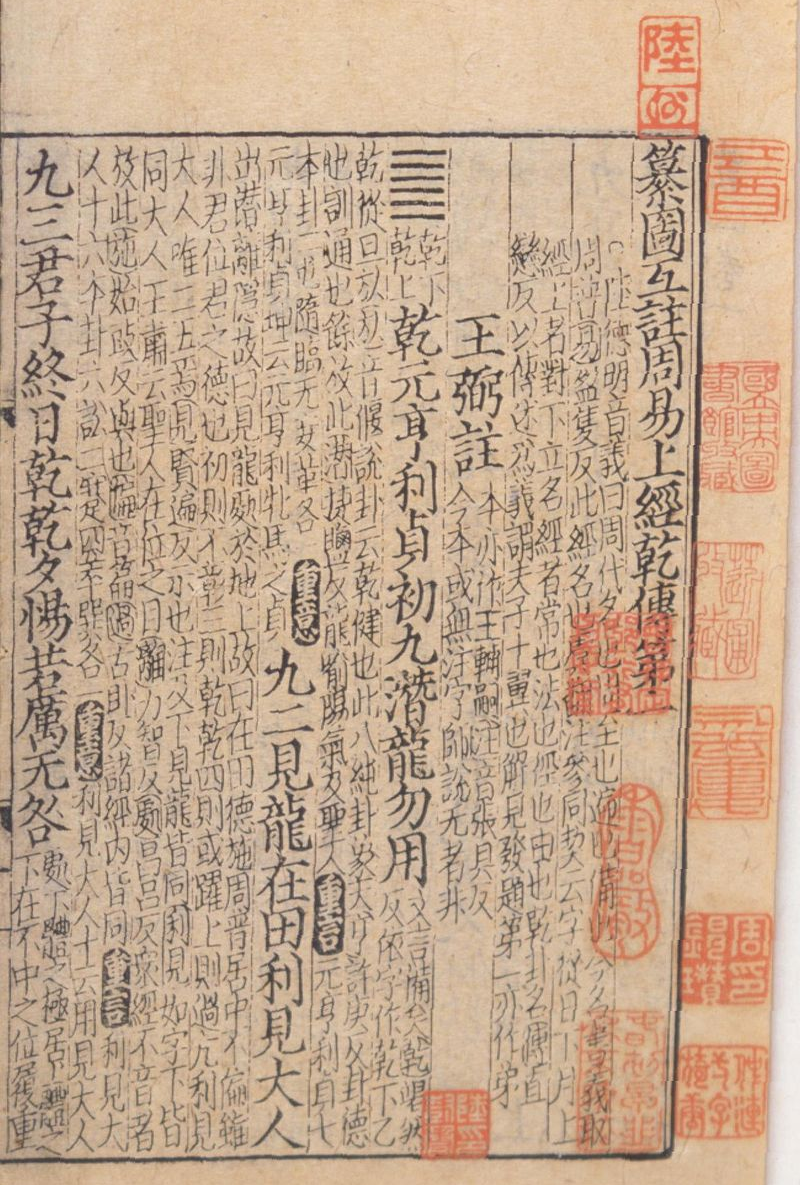 纂圖互註周易上經乾傳第一
○陸德明音義曰周代名也周至也遍也備也今名書義取
周普易盈隻反此經名也虞翻注參同契云字從日下月上
經上者對下立名經者常也法也徑也由也乾卦名傳直
戀反以傳述爲義謂夫子十翼也解見發題第一亦作弟
王弼註 本亦作王輔嗣注音張具反
今本或無注字師說无者非
䷀ 乾下
乾上
乾元亨利貞初九潛龍勿用 文言備矣乾竭然
反依字作乾下乙
乾從旦㫃㫃音偃說卦云乾健也此八純卦象天亨許庚反卦德
也訓通也餘放此潛捷鹽反龍喻陽氣及聖人 重言 元亨利貞七
本卦二屯隨臨无妄革各一
重意 元亨利貞坤云元亨利牝馬之貞
九二見龍在田利見大人
出潛離隱故曰見龍處於地上故曰在田德施周普居中不偏雖
非君位君之德也初則不彰三則乾乾四則或躍上則過亢利見
大人唯二五焉見賢遍反示也注及下見龍皆同利見如字下皆
同大人王肅云聖人在位之目離力智反處昌呂反衆經不音者
放此施始豉反與也偏音篇過古臥反諸經内皆同 重言 利見大
人十六本卦六訟二蹇四萃巽各一 重意 利見大人十云用見大人
九三君子終日乾乾夕惕若厲无咎 處下體之極居上體之
下在不中之位履重
陸
國立中央圖書館收藏